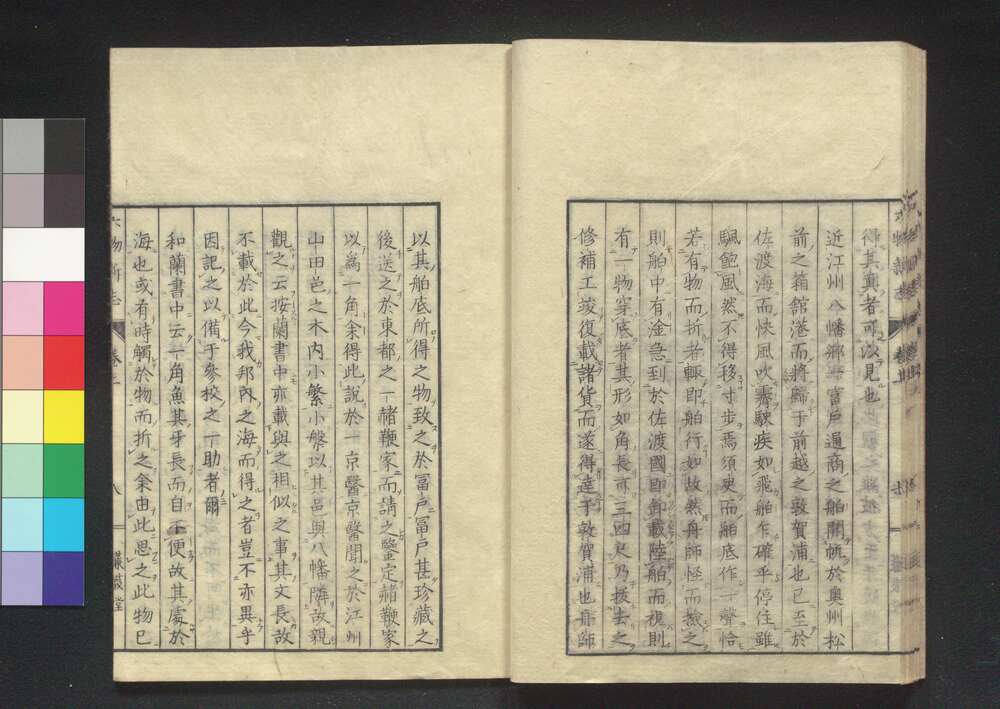 得其眞者可以見也
近江州八幡鄉富戶通商之舶開帆於奧州松
前之箱館港而將歸于前越之敦賀浦也已至於
佐渡海而快風吹駛疾如飛舶乍確乎停住雖
颿飽風然不得移寸步焉須臾而舶底作一聲恰
若有物而折者輙即舶行如故然舟師怪而撿之
則舶中有淦急到於佐渡國即卸載陸舶而視則
有一物穿底者其形如角長可三四尺乃拔去之
修補工竣復載諸貨而遂得達于敦賀浦也舟師
以其舶底所得之物致之於冨戶冨戶甚珍藏之
後送之於東都之一赭鞭家而請之鑒定赭鞭家
以爲一角余得此說於一京醫京醫聞之於江州
山田邑之木內小繁小繁以其邑與八幡隣故親
觀之云按蘭書中亦載與之相似之事其文長故
不載於此今我邦內之海而得之者豈不亦異乎
因記之以備于參挍之一助者爾
和蘭書中云一角魚其牙長而自不便故其處於
海也或有時觸於物而折之余由此思之此物已
六物新志 卷上 八